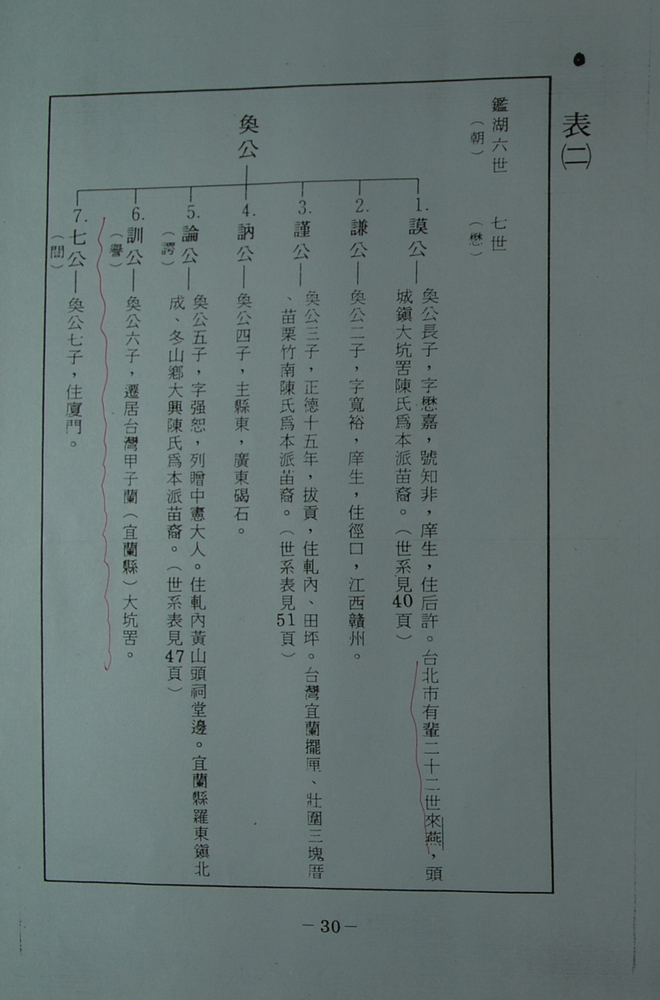 表㈡
鑑湖六世　七世
（朝）　（懋）
奐公
1.謨公—奐公長子，字懋嘉，號知非，庠生，住后許。台北市有輩二十二世來燕，頭
城鎭大坑罟陳氏爲本派苗裔。（世系見40頁）
2.謙公—奐公二子，字寬裕，庠生，住徑口，江西贛州。
3.謹公—奐公三子，正德十五年，拔貢，住軋內、田坪。台灣宜蘭擺厘、壯圍三塊厝
、苗栗竹南陳氏爲本派苗裔。（世系表見51頁）
4.訥公—奐公四子，主縣東，廣東碣石。
5.論公—奐公五子，字强恕，列贈中憲大人。住軋內黃山頭祠堂邊。宜蘭縣羅東鎭北
（諤）
成、冬山鄉大興陳氏爲本派苗裔。（世系表見47頁）
6.訓公—奐公六子，遷居台灣甲子蘭（宜蘭縣）大坑罟。
（譽）
7.七公—奐公七子，住廈門。
（誾）
－30－